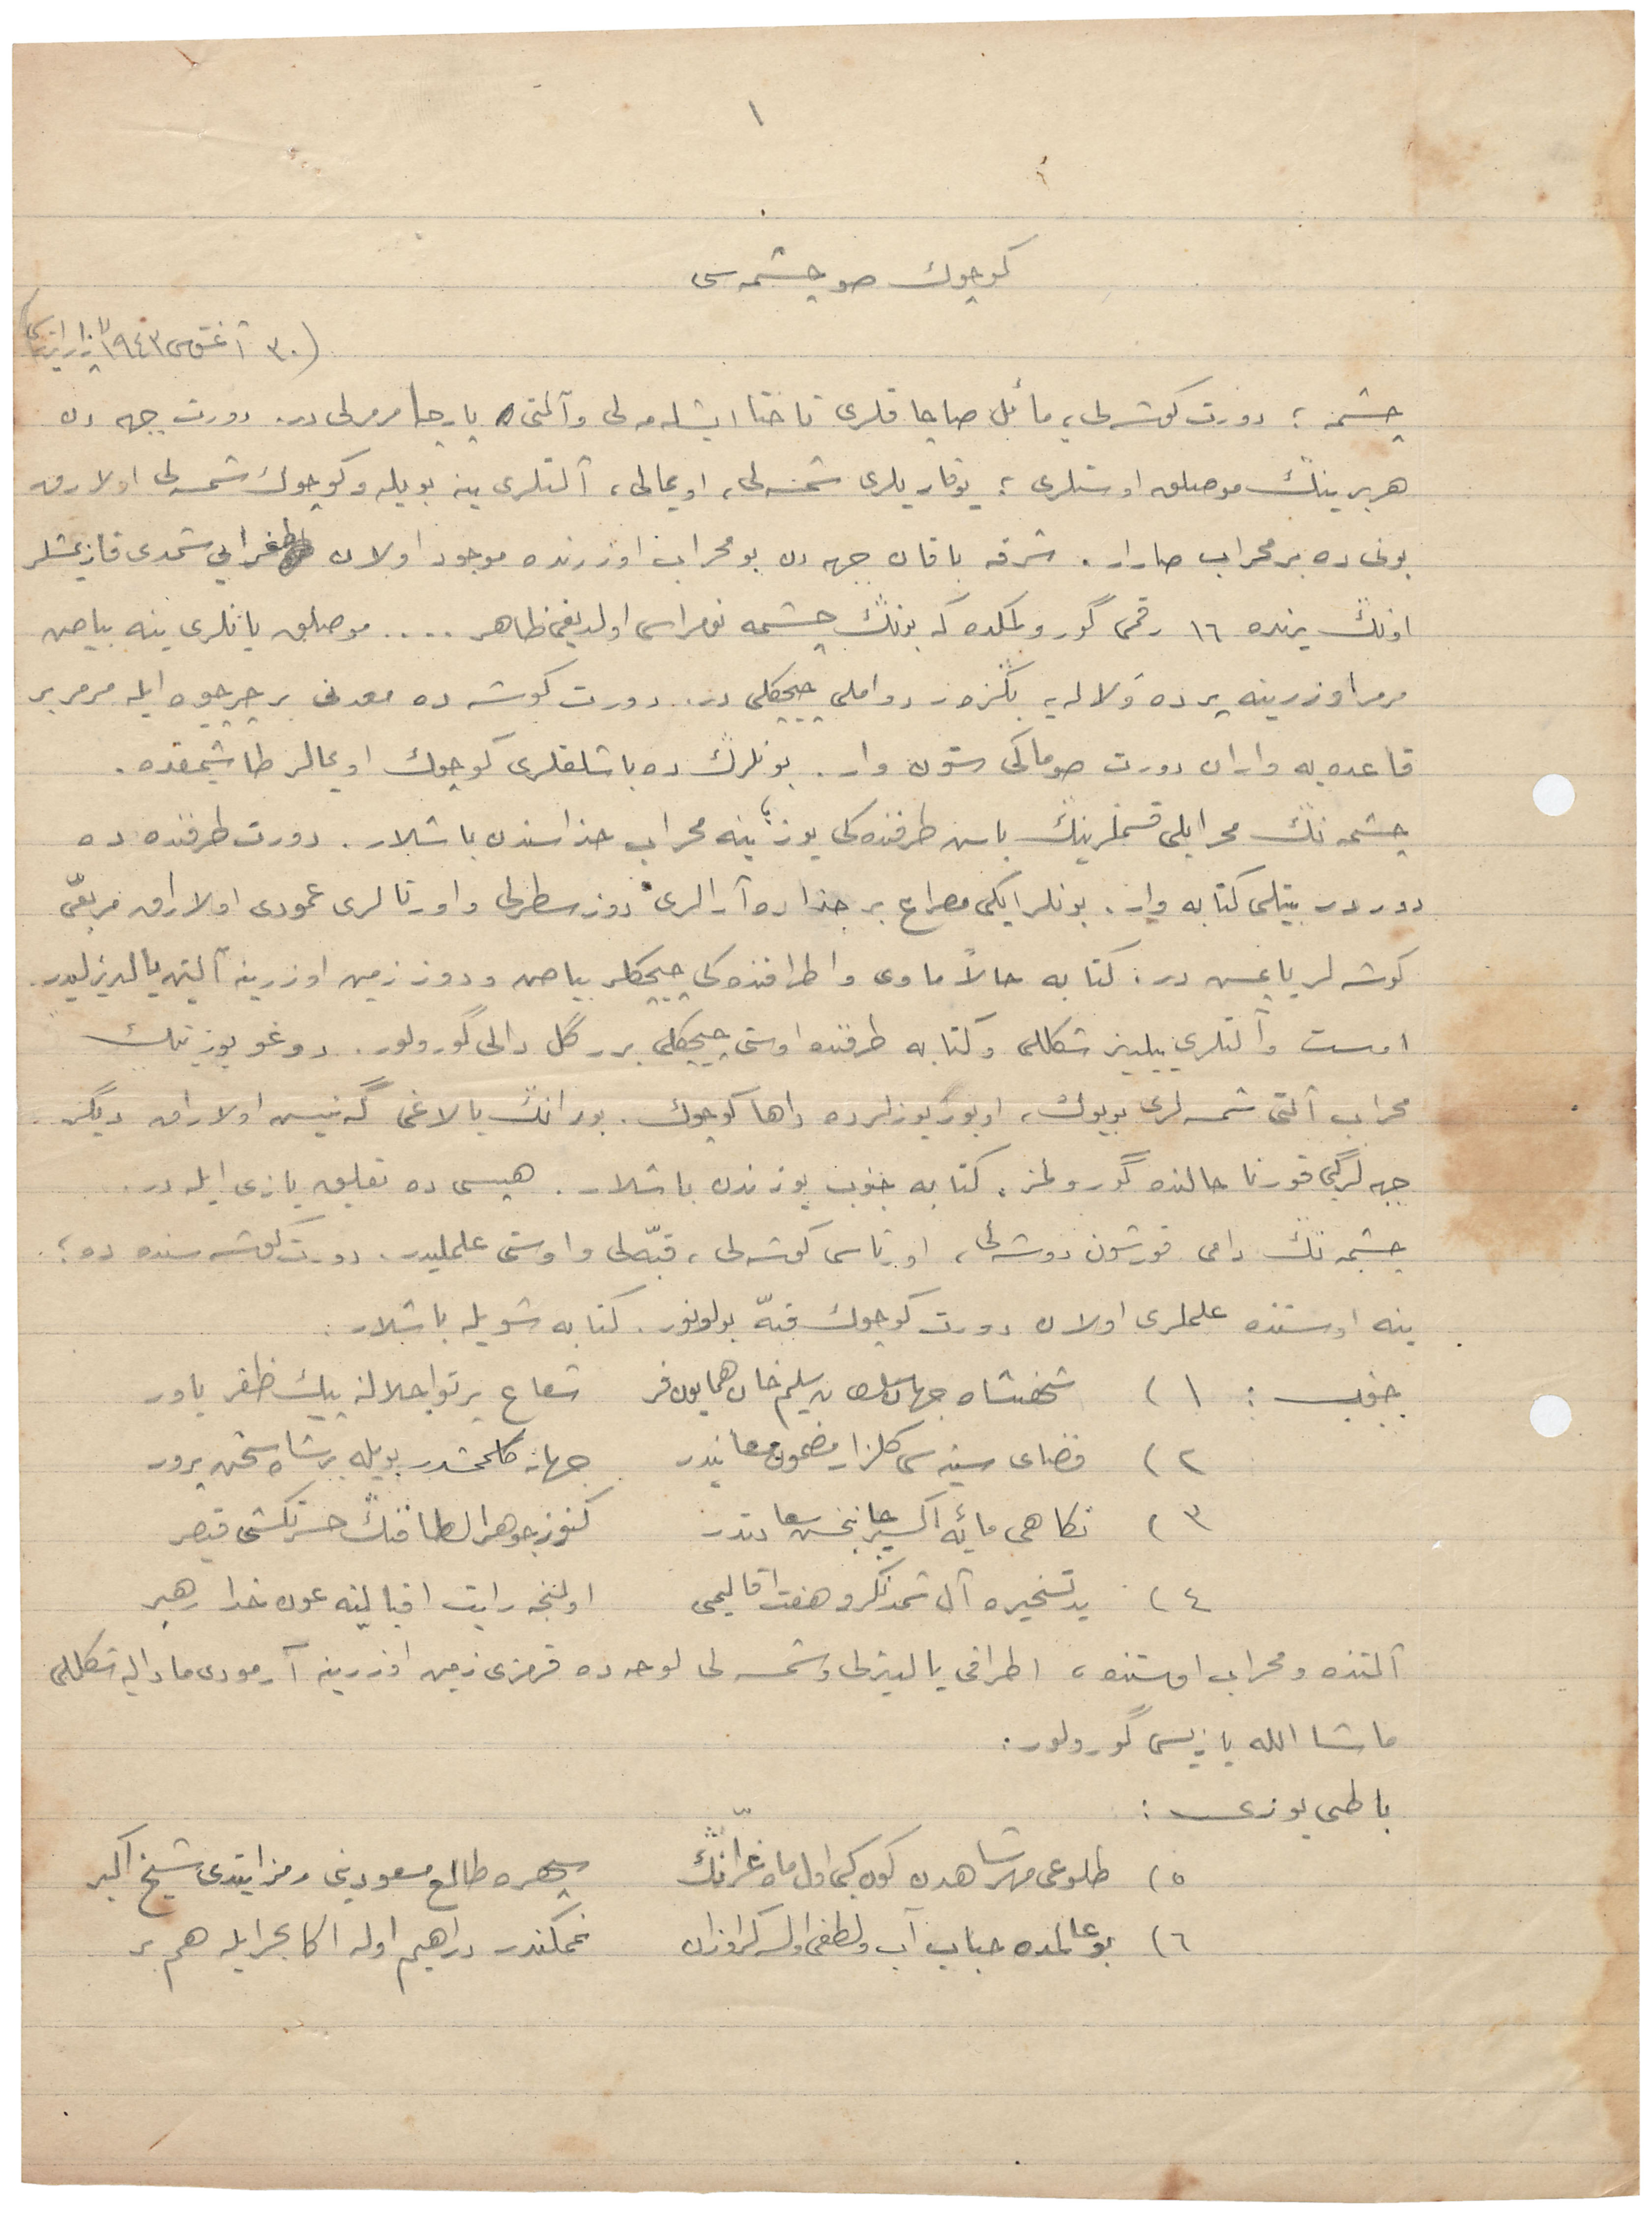 ١
كوچوك صو چشمه سی
(٣٠ آغستوس ١٩٤٣ پازار ايرتسی)
چشمه ؛ دورت كوشه لی، مائل صاچاقلری تاختا ايشلمه لی وآلتی پارچا مرمرلی در. دورت جهه دن
هر برينڭ موصلق اوستلری ؛ يوقاريلری شمسه لی، اويمالی، آلتلری ينه بويله وكوچوك شمسه لی اولارق
بونی ده بر محراب صارار. شرقه باقان جهه دن بو محراب اوزرنده موجود اولان طغرايی شمدی قازيمشلر
اونڭ يرنده ١٦ رقمی گورولمكده كه بونڭ چشمه نومراسی اولديغی ظاهر .... موصلق يانلری ينه بياض
مرمر اوزرينه پرده ولاله يه بڭزر دواملی چيچكلی در. دورت كوشه ده معدنی بر چرچوه ايله مرمر بر
قاعده يه واران دورت صوماكی ستون وار. بونلرڭ ده باشلقلری كوچوك اويمالر طاشيمقده.
چشمه نڭ محرابلی قسملرينڭ ياسن طرفنده كی يوز؛ ينه محراب حذاسندن باشلار. دورت طرفنده ده
دوردر بيتلی كتابه وار. بونلر ايكی مصراع بر حذاده آرالری دوز سطرلی واورتالری عمودی اولارق مربعی
كوشه لر ياپمش در: كتابه حالاً ماوی واطرافنده كی چيچكلر بياض ودوز زمين اوزرينه آلتين يالديزليدر.
اوست وآلتلری ييلديز شكللی وكتابه طرفنده اوستی چيچكلی برر گل دالی گورولور. دوغو يوزينڭ
محراب آلتی شمسه لری بويوك، اوبور يوزلرده داها كوچوك. بورانڭ يالاغی گه نيش اولارق ديگر
جهه لرگی قورنا حالنده گورولمز. كتابه جنوب يوزندن باشلار. هپسی ده تعليق يازی ايله در.
چشمه نڭ دامی قورشون دوشه لی، اورتاسی كوشه لی، قبّه لی واوستی علمليدر. دورت كوشه سنده ده؛
ينه اوستنده علملری اولان دورت كوچوك قبّه بولونور. كتابه شويله باشلار:
جنوب : ١) شهنشاه جهان سلطان سليم خان همايون فر شعاع پرتو اجلالنه پيك ظفر ياور
٢) فضای سينه سی گلزار مضمون معانيدر جهانه گلمه مشدر بويله بر شاه سخن پرور
٣) نگاهی مايهٔ اكسير جانبخش سعادتدر كنوز جوهر الطافنڭ حسرتكشی قيصر
٤) يد تسخيره آل شمدنگرو هفت اقاليمی اولنجه رايت اقبالينه عون خدا رهبر
آلتنده ومحراب اوستنده، اطرافی يالديزلی وشمسه لی لوحه ده قرمزی زمين اوزرينه آرمودی مادالیه شكللی
ماشا الله يازيسی گورولور:
باطی يوزی :
٥) طلوعی مهر شاهدن كون كبی اول ماه غرّانڭ سپهره طالع مسعودينی رمز ايتدی شيخ اكبر
٦) بو عالمده حباب آب ولطفی اولسه گر اوزان ممكندر دراهيم اوله اكا بحر ايله هم بر